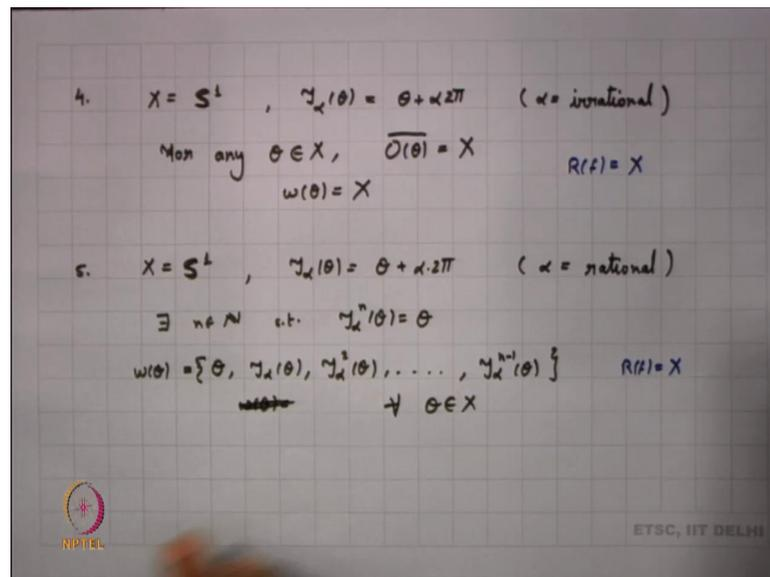 4. X = S¹ , T_α(θ) = θ + α2π (α = irrational)
For any θ ∈ X, \overline{O(θ)} = X
R(f) = X
ω(θ) = X
5. X = S¹ , T_α(θ) = θ + α.2π (α = rational)
∃ n ∈ ℕ s.t. T_α^n(θ) = θ
ω(θ) = {θ, T_α(θ), T_α^2(θ), ....., T_α^{n-1}(θ)} R(f) = X
∀ θ ∈ X
NPTEL
ETSC, IIT DELHI